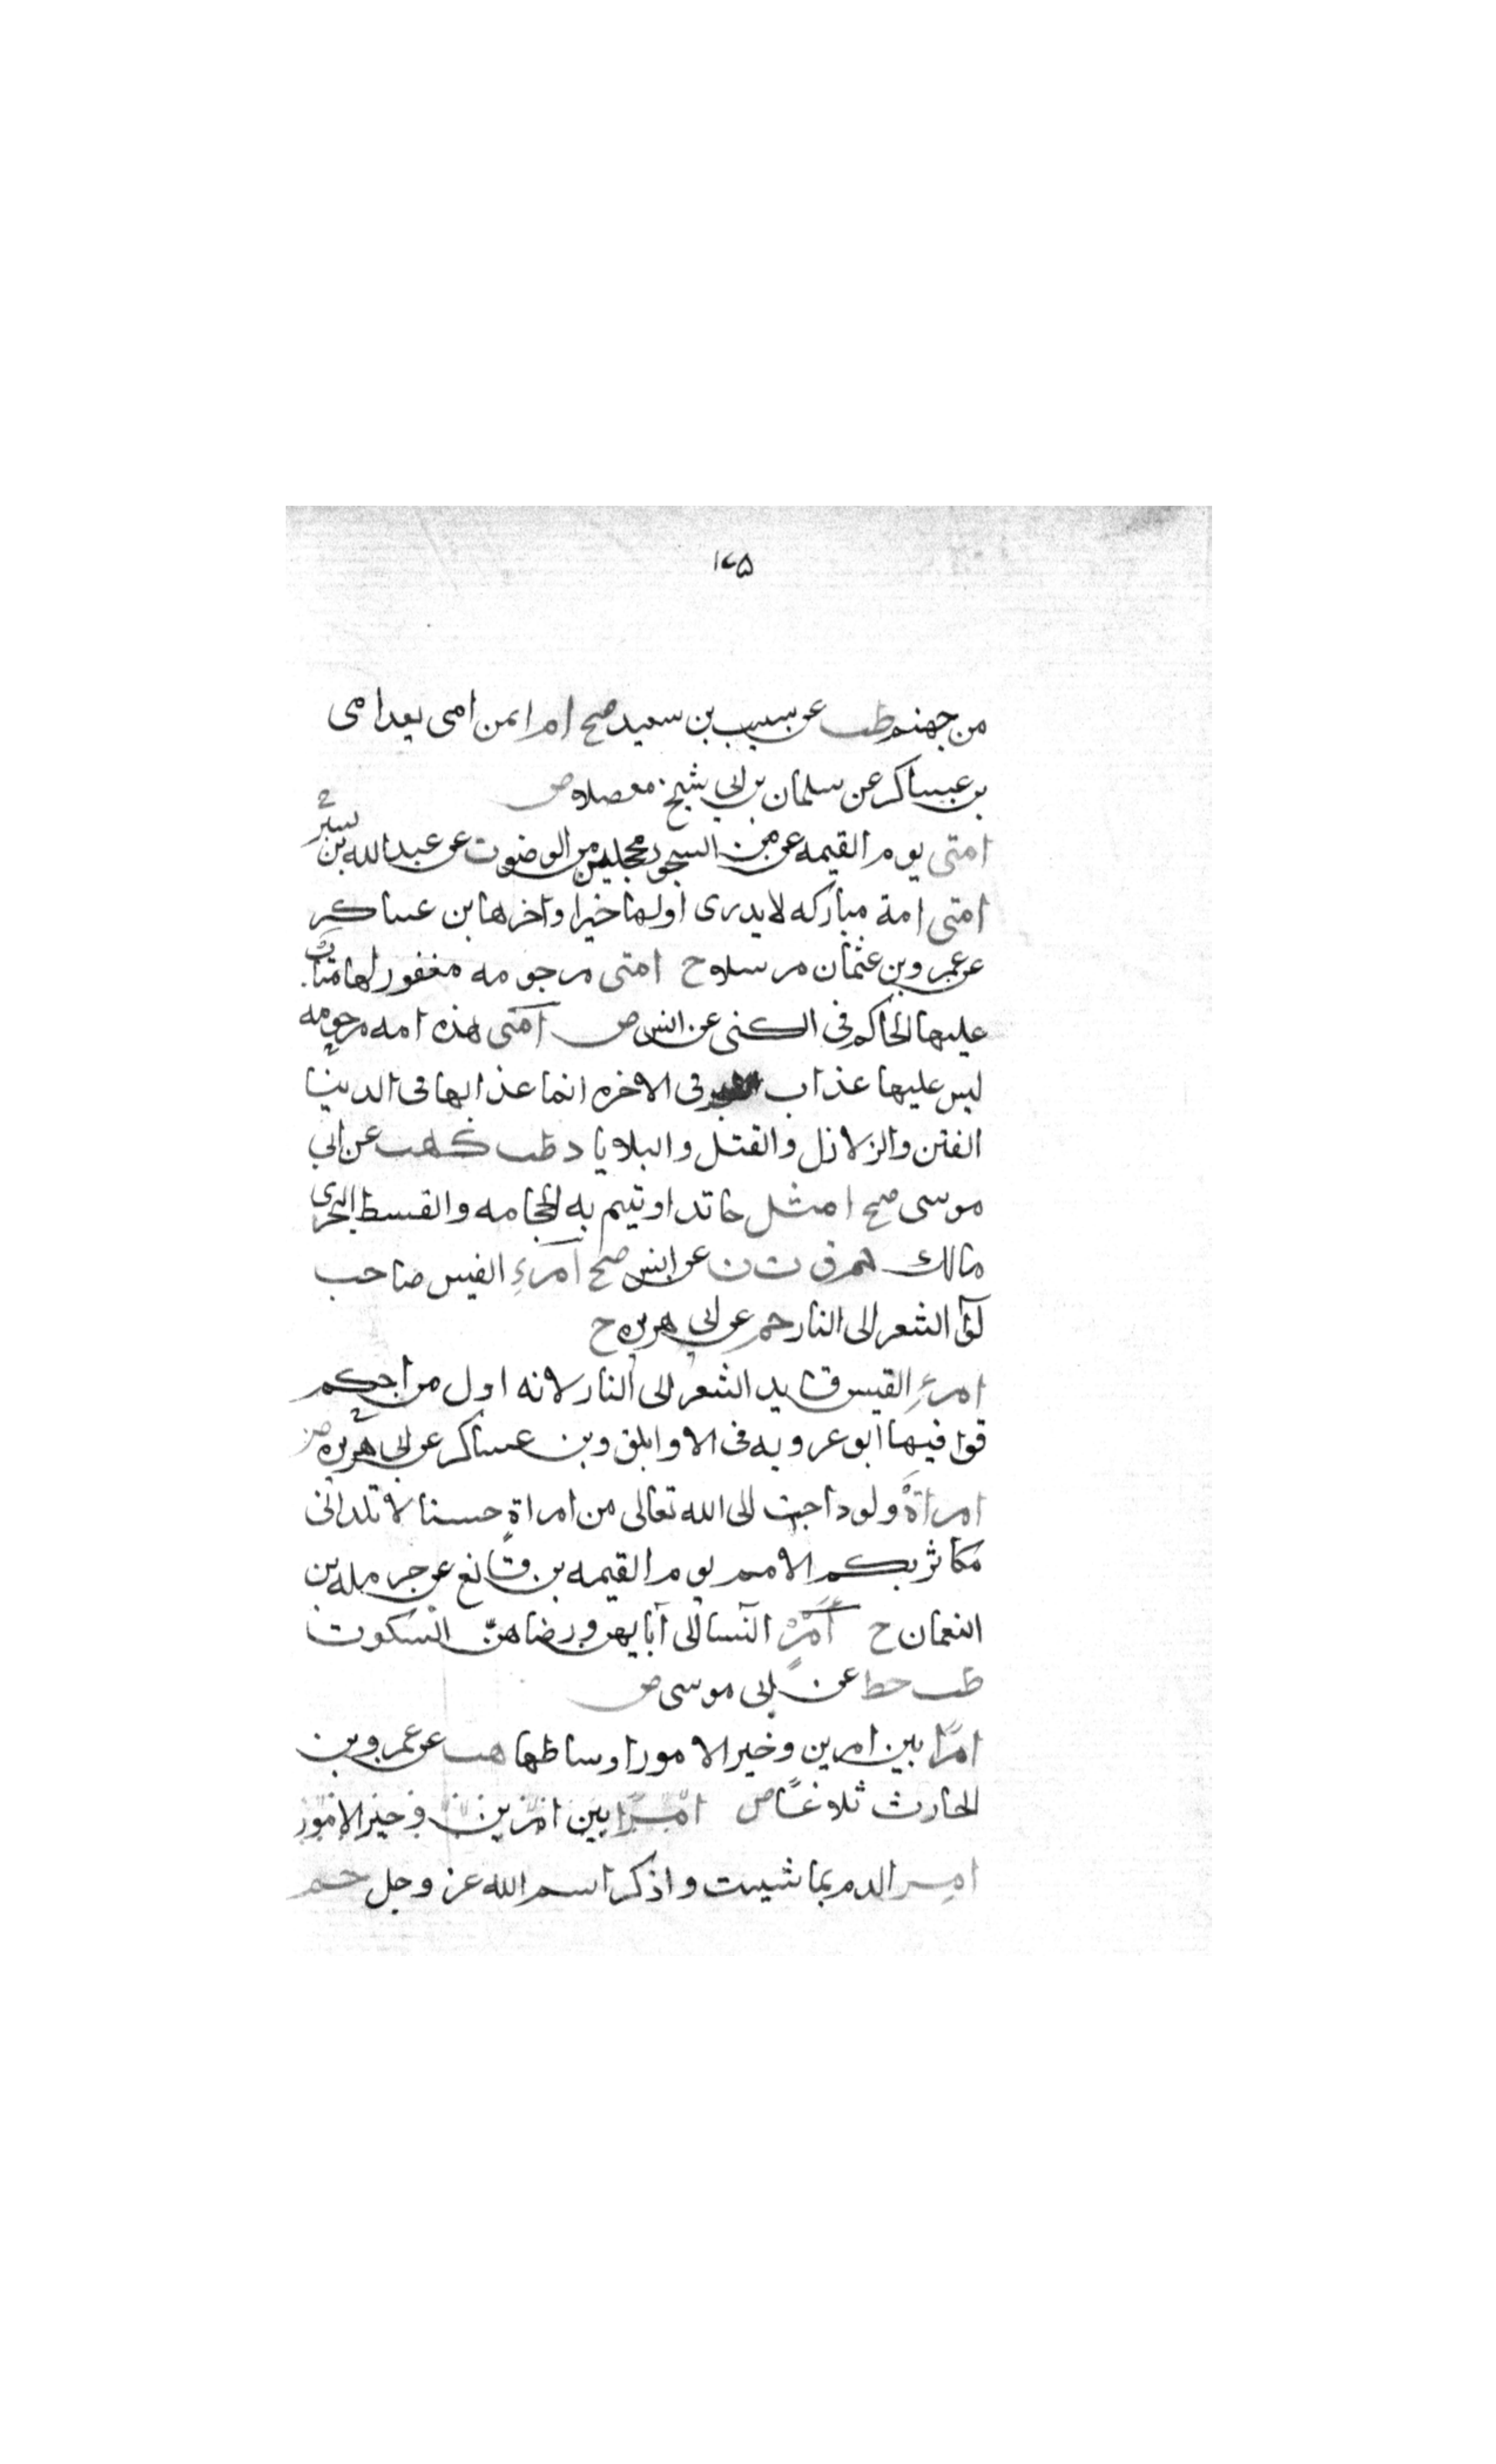 ١٢٥
من جهنم طب عن سبيب بن سعيد صح ام ايمن امى بعد امى
بن عساكر عن سلمان بن ابي شيخ معضلا ض
امتى يوم القيمه غر من السجود محجلين من الوضو ت عن عبد الله بن بسر
امتى امة مباركه لا يدرى اولها خيرا واخرها بن عساكر
عن عمرو بن عثمان مرسلا ح امتى مرحومه مغفور لها متاب
عليها الحاكم فى الكنى عن انس ض امتى هذه امه مرحومه
ليس عليها عذاب فى الاخره انما عذابها فى الدنيا
الفتن والزلازل والقتل والبلايا د طب ك هب عن ابي
موسى صح امثل ما تداويتم به الحجامه والقسط البحرى
مالك حم ق ت ن عن انس صح امرء القيس صاحب
لوا الشعر الى النار حم عن ابي هريره ح
امرء القيس قايد الشعر الى النار لانه اول من احكم
قوافيها ابو عروبه فى الاوايل وبن عساكر عن ابي هريره ض
امراة ولود احب الى الله تعالى من امراة حسنا لا تلد انى
مكاثر بكم الامم يوم القيمه بن قانع عن حرمله بن
النعمان ح امر النسا الى آبايهن ورضاهن السكوت
طب خط عن ابي موسى ض
امرا بين امرين وخير الامور اوساطها هب عن عمرو بن
الحارث بلاغا ض امرا بين امرين وخير الامور
امر الدم بما شيت واذكر اسم الله عز وجل حم